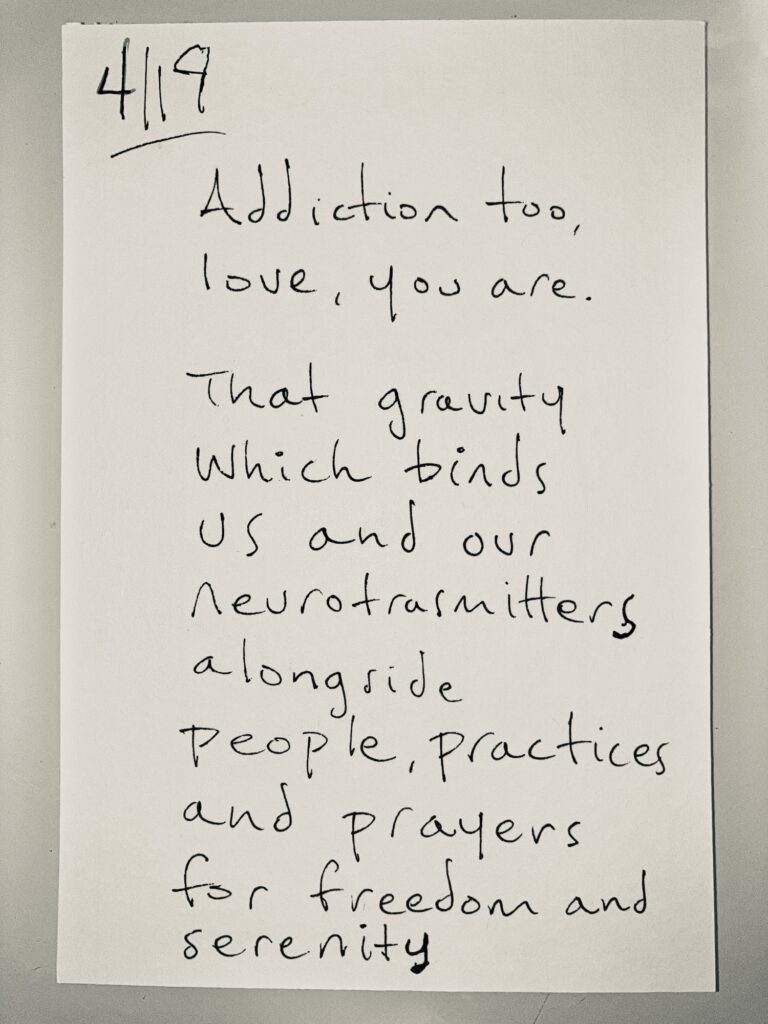 4/19
Addiction too,
love, you are.
That gravity
which binds
us and our
neurotrasmitters
alongside
people, practices
and prayers
for freedom and
serenity